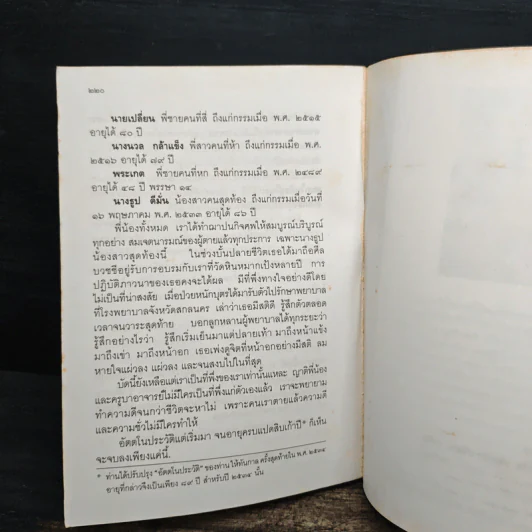 ๒๒๐
นายเปลี่ยน พี่ชายคนที่สี่ ถึงแก่กรรมเมื่อ พ.ศ. ๒๕๑๕
อายุได้ ๘๐ ปี
นางนวล กล้าแข็ง พี่สาวคนที่ห้า ถึงแก่กรรมเมื่อ พ.ศ.
๒๕๑๖ อายุได้ ๗๙ ปี
พระเกต พี่ชายคนที่หก ถึงแก่กรรมเมื่อ พ.ศ. ๒๔๘๙
อายุได้ ๔๘ ปี พรรษา ๑๔
นางธูป ดีมั่น น้องสาวคนสุดท้อง ถึงแก่กรรมเมื่อวันที่
๑๖ พฤษภาคม พ.ศ. ๒๕๓๓ อายุได้ ๘๖ ปี
พี่น้องทั้งหมด เราได้ทำฌาปนกิจศพให้สมบูรณ์บริบูรณ์
ทุกอย่าง สมเจตนารมณ์ของผู้ตายแล้วทุกประการ เฉพาะนางธูป
น้องสาวสุดท้องนี้ ในช่วงบั้นปลายชีวิตเธอได้มาถือศีล
บวชชีอยู่รับการอบรมกับเราที่วัดหินหมากเป้งหลายปี การ
ปฏิบัติภาวนาของเธอคงจะได้ผล มีที่พึ่งทางใจอย่างดีโดย
ไม่เป็นที่น่าสงสัย เมื่อป่วยหนักบุตรได้มารับตัวไปรักษาพยาบาล
ที่โรงพยาบาลจังหวัดสกลนคร เล่าว่าเธอมีสติดี รู้สึกตัวตลอด
เวลาจนวาระสุดท้าย บอกลูกหลานผู้พยาบาลได้ทุกระยะว่า
รู้สึกอย่างไรว่า รู้สึกเริ่มเย็นมาแต่ปลายเท้า มาถึงหน้าแข้ง
มาถึงเข่า มาถึงหน้าอก เธอเพ่งดูจิตที่หน้าอกอย่างมีสติ ลม
หายใจแผ่วลง แผ่วลง และจนสงบไปในที่สุด
บัดนี้ยังเหลือแต่เราเป็นที่พึ่งของเราเท่านั้นแหละ ญาติพี่น้อง
และครูบาอาจารย์ไม่มีใครเป็นที่พึ่งแก่ตัวเองแล้ว เราจะพยายาม
ทำความดีจนกว่าชีวิตจะหาไม่ เพราะคนเราตายแล้วความดี
และความชั่วไม่มีใครทำให้
อัตตโนประวัติแต่เริ่มมา จนอายุครบแปดสิบเก้าปี* ก็เห็น
จะจบลงเพียงแค่นี้.
* ท่านได้ปรับปรุง "อัตตโนประวัติ" ของท่าน ให้ทันกาล ครั้งสุดท้ายใน พ.ศ. ๒๕๓๔
อายุที่กล่าวจึงเป็นเพียง ๘๙ ปี สำหรับปี ๒๕๓๔ นั้น